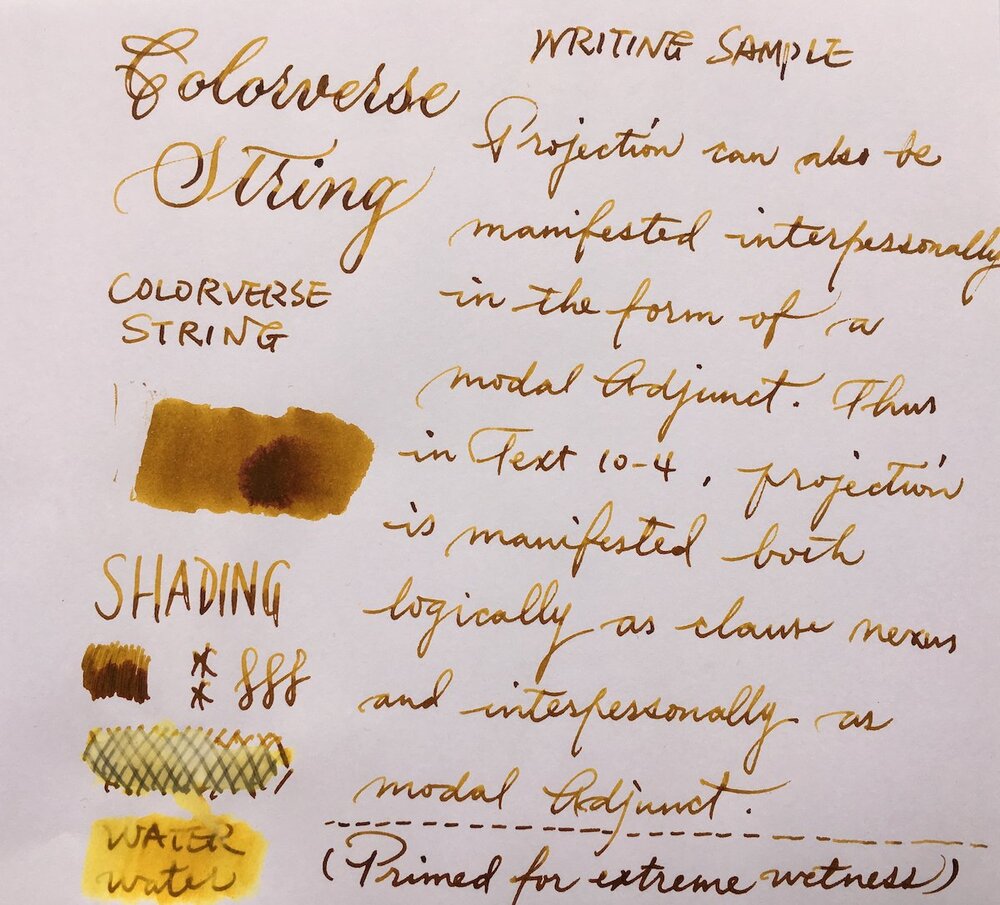 Colorverse
String
COLORVERSE
STRING
SHADING
WATER
water
WRITING SAMPLE
Projection can also be
manifested interpersonally
in the form of a
modal Adjunct. Thus
in Text 10-4, projection
is manifested both
logically as clause nexus
and interpersonally as
modal Adjunct.
(Primed for extreme wetness)